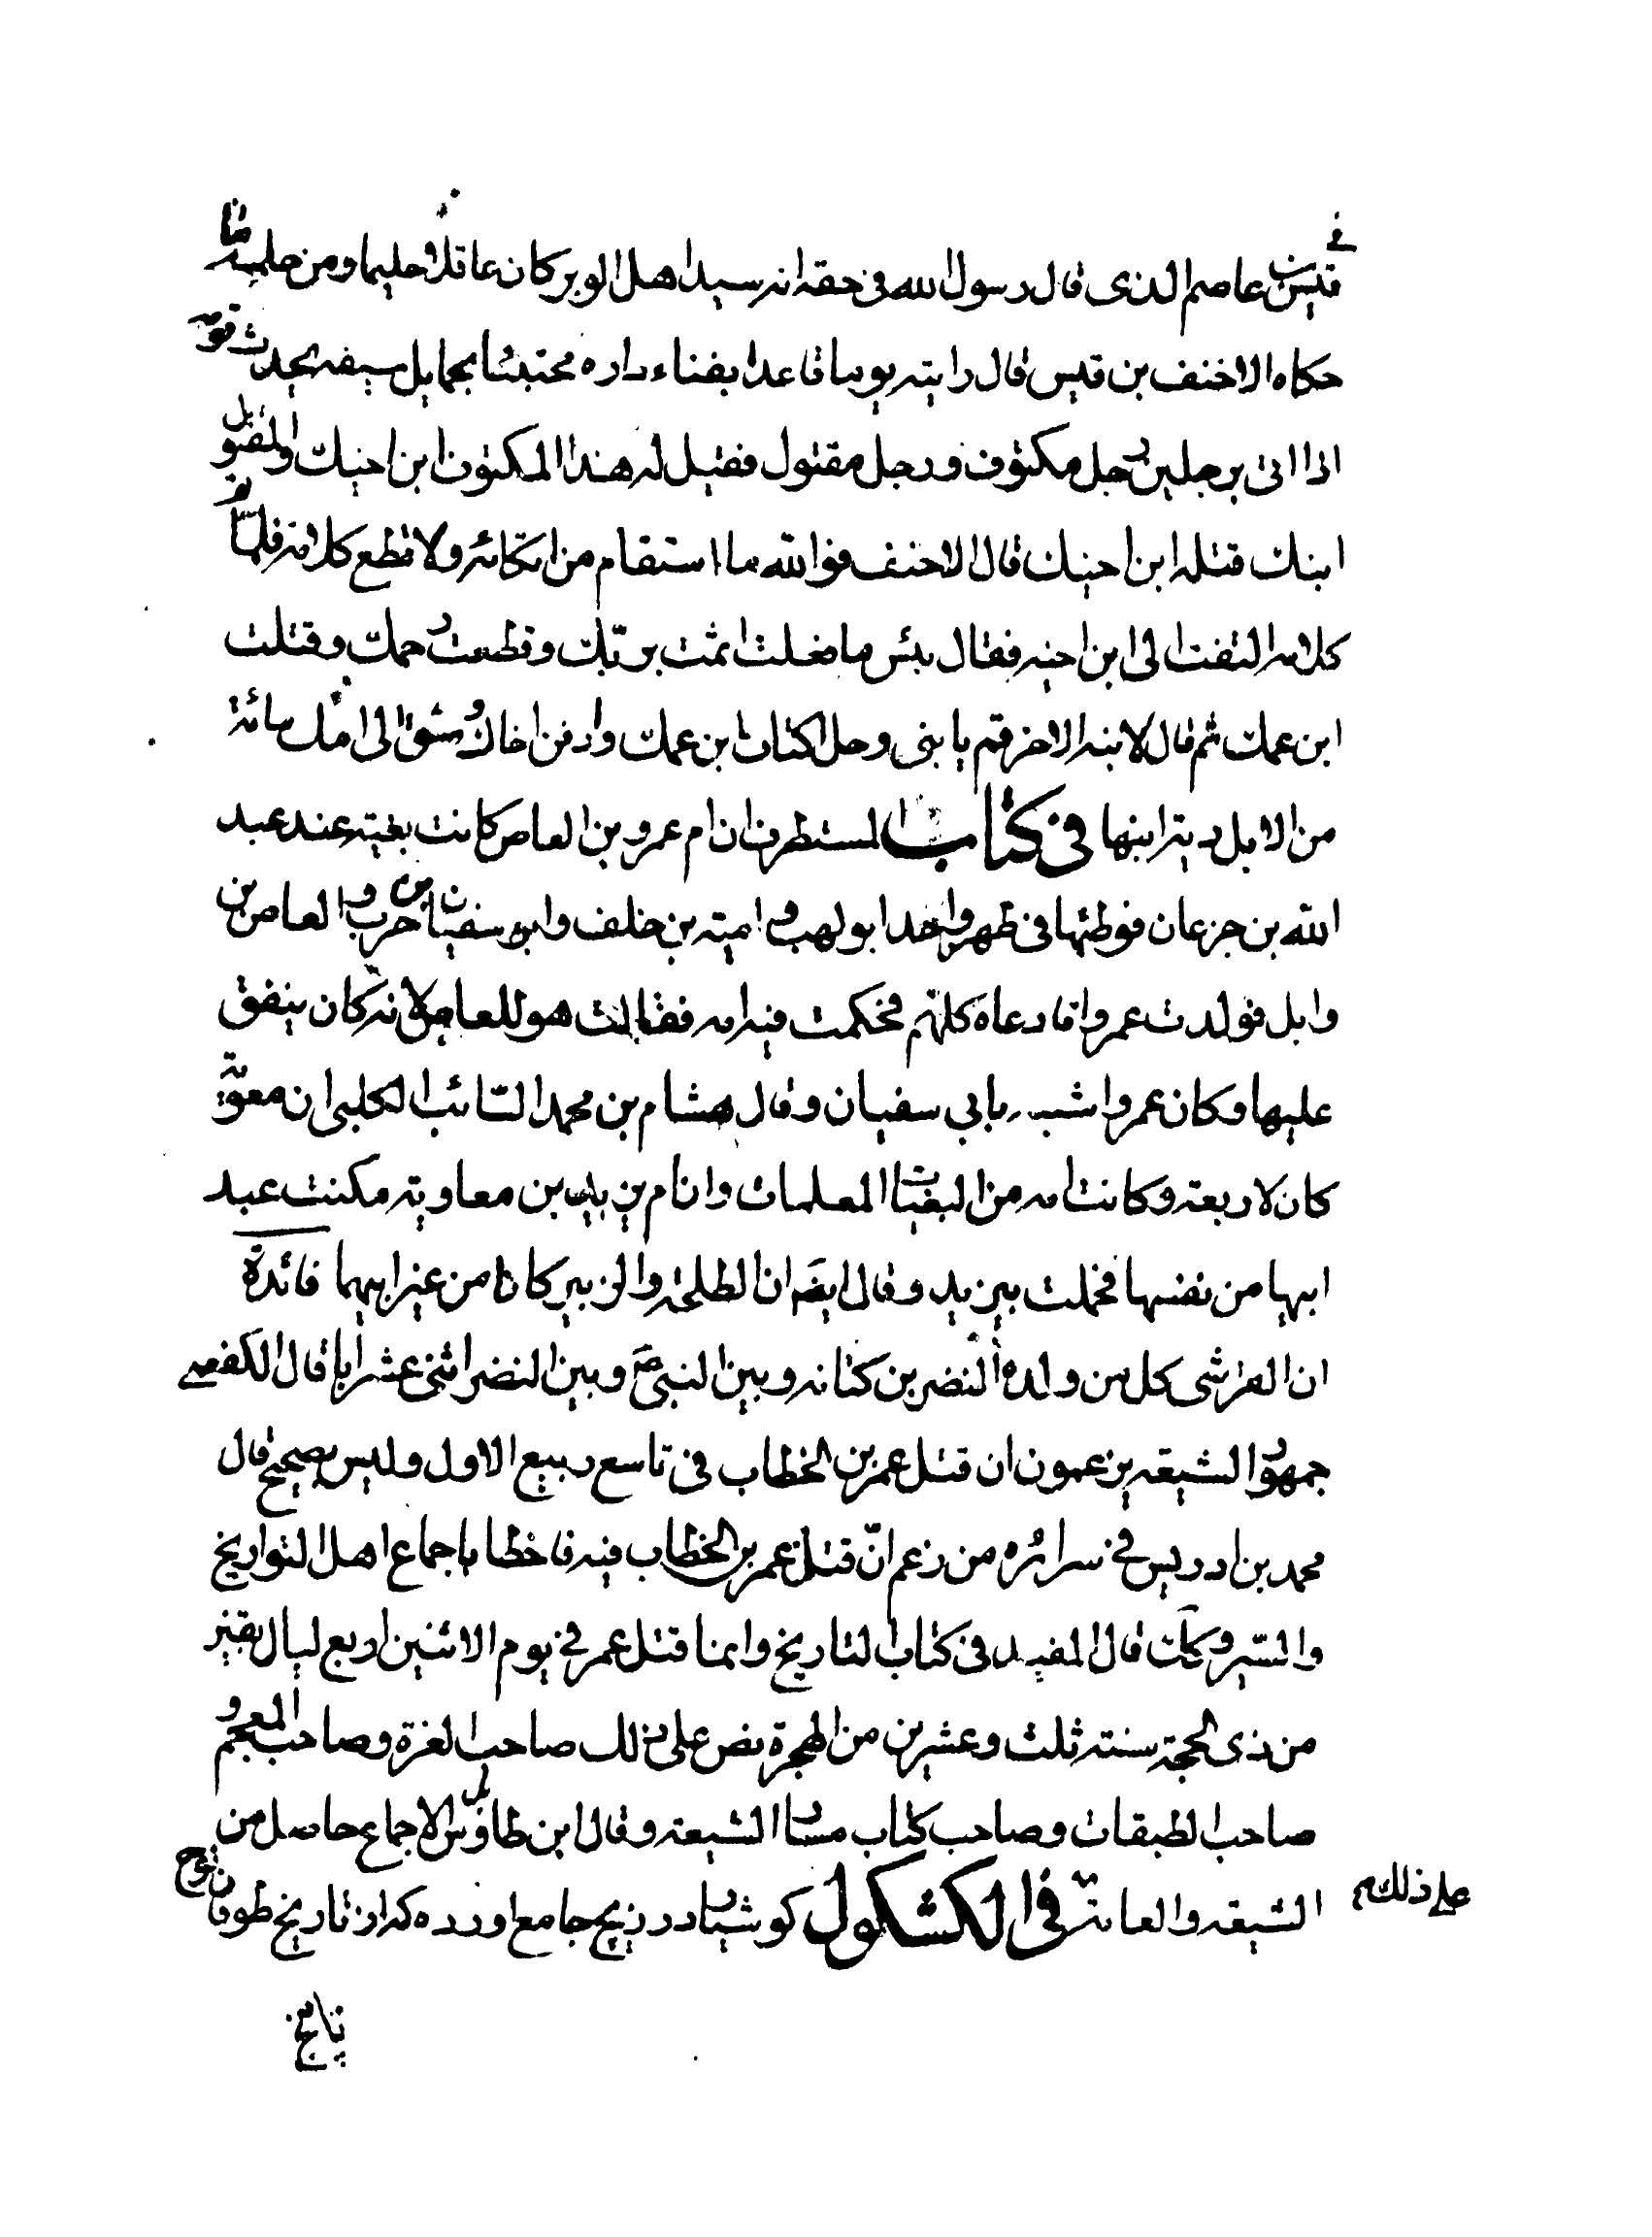 قيس بن عاصم الذى قال رسول الله فى حقه انه سيد اهل الوبر كان عاقلا و حليما و من حلمه ما
حكاه الاحنف بن قيس قال رايته يوما قاعدا بفناء داره محتبئا بحمايل سيفه يحدث قومه
اذا اتى برجلين رجل مكتوف و رجل مقتول فقيل له هذا المكتوف ابن اخيك و المقتول
ابنك قتله ابن اخيك قال الاحنف فوالله ما استقام من اتكائه و لا قطع كلامه فلما
كلامه التفت الى ابن اخيه فقال بئس ما فعلت اثمت بربّك و قطعت رحمك و قتلت
ابن عمك ثم قال لابنه الاخر قم يا بنى و حل اكتاف ابن عمك و ادفن اخاك و سق الى امك مائة
من الابل دية ابنها فى كتاب المستطرف ان ام عمرو بن العاص كانت بغية عند عبد
الله بن جزعان فوطئها فى طهر واحد ابو لهب و امية بن خلف و ابو سفيان بن حرب و العاص بن
وايل فولدت عمروا فادعاه كلهم فحكمت فيه امه فقالت هو للعاص لانه كان ينفق
عليها و كان عمروا شبه بابي سفيان و قال هشام بن محمد السّائب الكلبي ان معوية
كان لاربعة و كانت امه من البغيات المعلمات و ان ام يزيد بن معاوية مكنت عبد
ابيها من نفسها فحملت بيزيد و قال ايضه ان الطلحة و الزبير كانا من غير ابيهما فائدة
ان القرشى كل من ولده النضر بن كنانه و بين النبى ص و بين النضر اثنى عشر ابا قال الكفعمى
جمهور الشيعه يزعمون ان قتل عمر بن الخطاب فى تاسع ربيع الاول و ليس بصحيح قال
محمد بن ادريس فى سرائره من زعم انّ قتل عمر بن الخطاب فيه فاخطا باجماع اهل التواريخ
و السّير و كك قال المفيد فى كتاب التاريخ و انما قتل عمر فى يوم الاثنين اربع ليال بقين
من ذى الحجة سنته ثلث و عشرين من الهجرة نص على ذلك صاحب الغرة و صاحب المعجم و
صاحب الطبقات و صاحب كتاب مسار الشيعه و قال ابن طاوس بل الاجماع حاصل من
الشيعه و العامة على ذلك م فى الكشكول كوشيار در زيج جامع اورده كه از تاريخ طوفان نوح
تاريخ